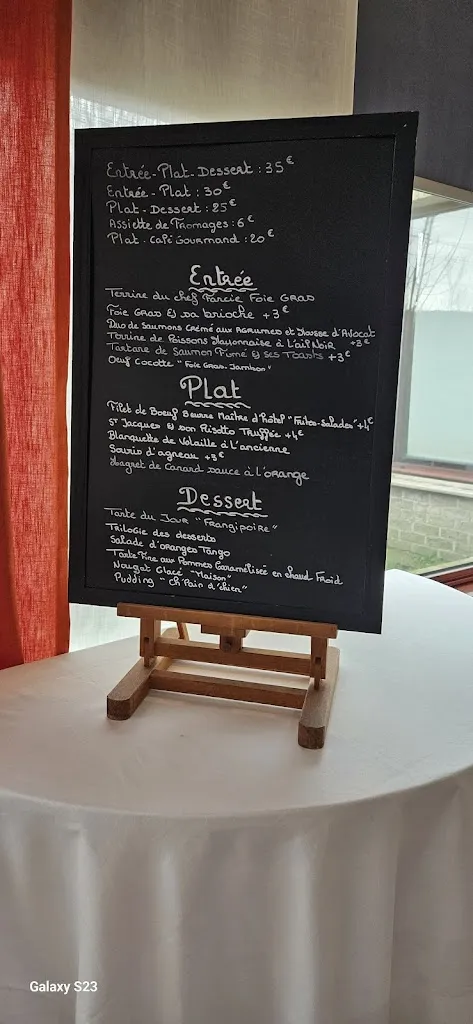 Entrée-Plat-Dessert : 35€
Entrée - Plat : 30€
Plat - Dessert : 25€
Assiette de Fromages : 6€
Plat - Café Gourmand : 20€
Entrée
Terrine du chef Farcie Foie Gras
Foie Gras & sa brioche +3€
Duo de Saumons Crémé aux Agrumes et Mousse d'Avocat
Terrine de Poissons Mayonnaise à l'ail Noir +3€
Tartare de Saumon Fumé & ses Toasts +3€
Oeuf Cocotte "Foie Gras. Jambon"
Plat
Filet de Boeuf Beurre Maître d'hôtel "Frites-Salades" +4€
St Jacques & son Risotto Truffée +4€
Blanquette de Volaille à l'ancienne
Souris d'agneau +3€
Magret de Canard sauce à l'orange
Dessert
Tarte du Jour "Frangipoire"
Trilogie des desserts
Salade d'oranges Tango
Tarte Fine aux Pommes Caramélisée en chaud Froid
Nougat Glacé "Maison"
Pudding "Ch'Pain d'chien"
Galaxy S23